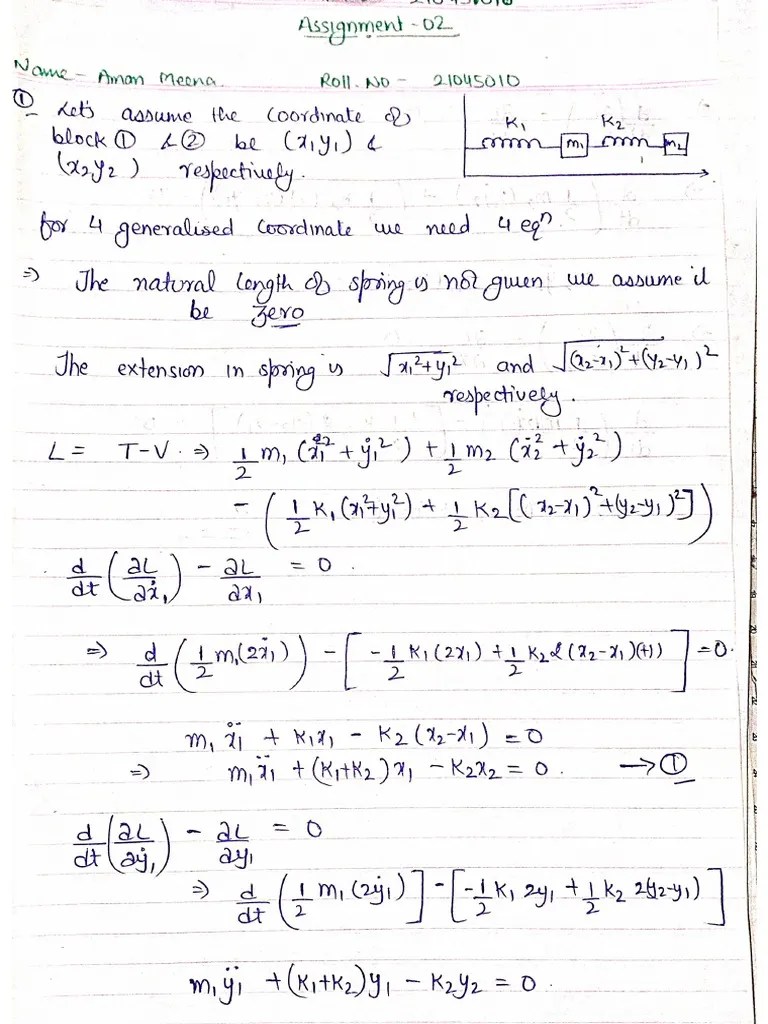 Assignment-02
Name - Aman Meena Roll. No - 21045010
① Let's assume the coordinate of
block ① & ② be (x₁y₁) &
(x₂y₂) respectively.
K₁ m₁ K₂ m₂
for 4 generalised coordinate we need 4 eqⁿ.
⇒ The natural length of spring is not given we assume it
be zero
The extension in spring is √(x₁²+y₁²) and √((x₂-x₁)²+(y₂-y₁)²)
respectively.
L = T-V ⇒ 1/2 m₁ (ẋ₁² + ẏ₁²) + 1/2 m₂ (ẋ₂² + ẏ₂²)
- (1/2 K₁(x₁²+y₁²) + 1/2 K₂[(x₂-x₁)²+(y₂-y₁)²])
d/dt (∂L/∂ẋ₁) - ∂L/∂x₁ = 0.
⇒ d/dt (1/2 m₁(2ẋ₁)) - [-1/2 K₁(2x₁) + 1/2 K₂ 2(x₂-x₁)(+1)] = 0.
m₁ẍ₁ + K₁x₁ - K₂(x₂-x₁) = 0
⇒ m₁ẍ₁ + (K₁+K₂)x₁ - K₂x₂ = 0. → ①
d/dt (∂L/∂ẏ₁) - ∂L/∂y₁ = 0
⇒ d/dt (1/2 m₁(2ẏ₁)] - [-1/2 K₁ 2y₁ + 1/2 K₂ 2(y₂-y₁)]
m₁ÿ₁ + (K₁+K₂)y₁ - K₂y₂ = 0.